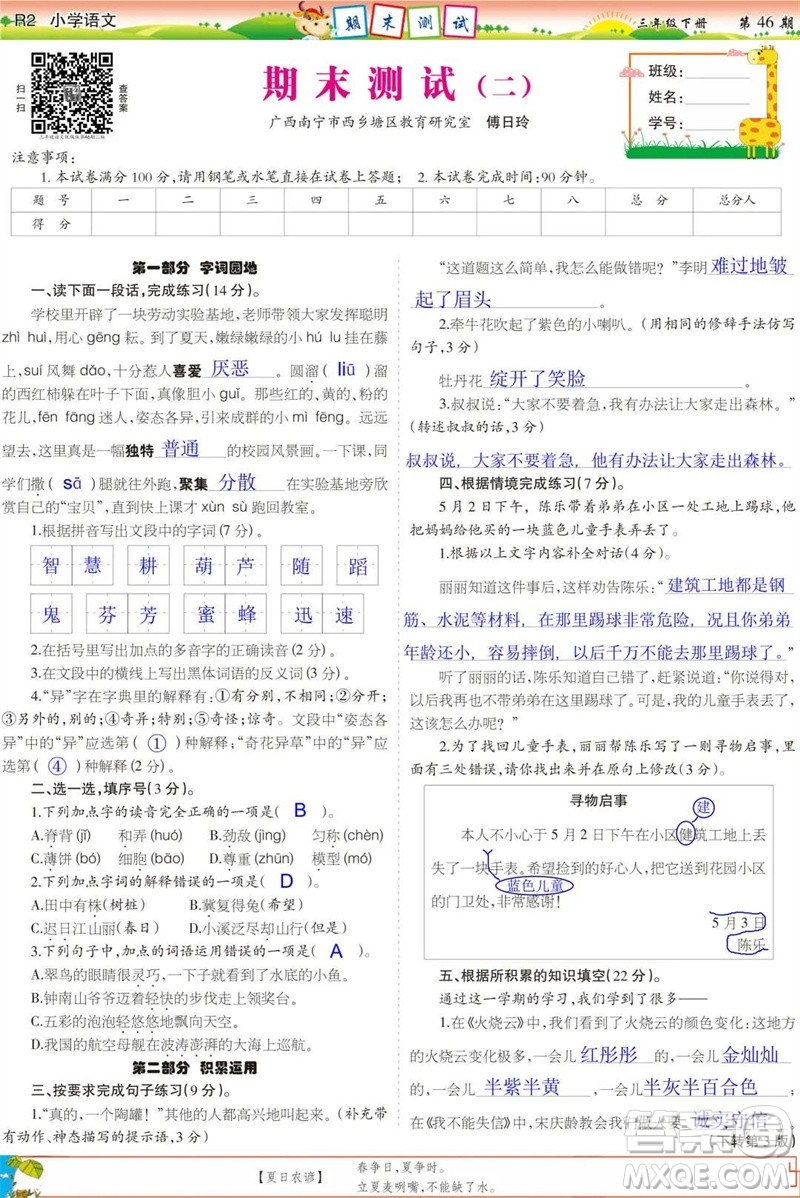 R2 小学语文
期末测试
三年级下册 第46期
扫一扫
查答案
期末测试(二)
广西南宁市西乡塘区教育研究室 傅日玲
班级:
姓名:
学号:
注意事项:
1. 本试卷满分100分,请用钢笔或水笔直接在试卷上答题; 2. 本试卷完成时间:90分钟。
题号 一 二 三 四 五 六 七 八 总分 总分人
得分
第一部分 字词园地
一、读下面一段话,完成练习(14分)。
学校里开辟了一块劳动实验基地,老师带领大家发挥聪明
zhì huì,用心gēng耘。到了夏天,嫩绿嫩绿的小手指挂在藤
上,suí风舞dǎo,十分惹人喜爱 厌恶 。圆溜( liū )
的西红柿躲在叶子下面,真像胆小guǐ。黄的、白的、粉的
花儿,fēn fāng迷人,姿态各异,引来成群的小mì fēng。远远
望去,这里真是一幅独特 普通 的校园风景画。一下课,同
学们撒( sā )腿就往外跑,聚集 分散 在实验基地旁欣
赏自己的“宝贝”,直到快上课才xùn sù跑回教室。
1.根据拼音写出文段中的字词(7分)。
智慧 耕 葫芦 随 蹈
鬼 芬芳 蜜蜂 迅速
2.在括号里写出加点的多音字的正确读音(2分)。
3.在文段中的横线上写出黑体词语的反义词(3分)。
4.“异”字在字典里的解释有:①有分别,不相同;②分开;
③另外的,别的;④奇异;特别;⑤奇怪;惊奇。文段中“姿态各
异”中的“异”应选第( ① )种解释;“奇花异草”中的“异”应选
第( ④ )种解释(2分)。
二、选一选,填序号(3分)。
1.下列加点字的读音完全正确的一项是( B )
A.脊背(jǐ) 和弄(huó) B.劲敌(jìng) 匀称(chèn)
C.薄饼(bó) 细胞(bāo) D.尊重(zhūn) 模型(mó)
2.下列加点字词的解释错误的一项是( D )
A.田中有株(树桩) B.冀复得兔(希望)
C.迟日江山丽(春日) D.小溪泛尽却山行(但是)
3.下列句子中,加点的词语运用错误的一项是( A )
A.翠鸟的眼睛很灵巧,一下子就发现了水底的小鱼。
B.钟南山爷爷迈着轻快的步伐走上了领奖台。
C.五彩的泡泡轻悠悠地飘向天空。
D.我国的航空母舰在波涛澎湃的大海上巡航。
第二部分 积累运用
三、按要求完成句子练习(9分)。
1.“真的,一个陶罐!”其他的人都高兴地叫起来。(补充带
有动作、神态描写的提示语,3分)
“这道题这么简单,我怎么能做错呢?”李明 难过地皱
起了眉头
2.牵牛花吹起了紫色的小喇叭。(用相同的修辞手法仿写
句子,3分)
牡丹花 绽开了笑脸
3.叔叔说:“大家不要着急,我有办法让大家走出森林。”
(转述叔叔的话,3分)
叔叔说,大家不要着急,他有办法让大家走出森林。
四、根据情境完成练习(7分)。
5月2日下午,陈乐带着弟弟在小区一处工地上踢球,他
把妈妈给他买的一块蓝色儿童手表弄丢了。
1.根据以上文字内容补全对话(4分)。
丽丽知道这件事后,这样劝告陈乐:“ 建筑工地都是钢
筋、水泥等材料,在那里踢球非常危险,况且你弟弟
年龄还小,容易摔倒,以后千万不能去那里踢球了。”
听了丽丽的话,陈乐知道自己错了,赶紧说道:“你说得对,
以后我再也不带弟弟在这里踢球了。可是,我的儿童手表丢了,
这该怎么办呢?”
2.为了找回儿童手表,丽丽帮陈乐写了一则寻物启事,里
面有三处错误,请大家找出来并在原句上修改(3分)。
寻物启事
建
本人不小心于5月2日下午在小区健筑工地上丢
失了一块手表。希望捡到的好心人,把它送到花园小区
蓝色儿童
的门卫处,非常感谢!
5月3日
陈乐
五、根据所积累的知识填空(22分)。
通过这一学期的学习,我们学到了很多——
1.在《火烧云》中,我们欣赏了火烧云的颜色变化:这地方
的火烧云变化极多,一会儿 红彤彤 的,一会儿 金灿灿
的,一会儿 半紫半黄 ,一会儿 半灰半百合色 ;
在《我不能失信》中,宋庆龄教会我们做人要 诚实守信 。
(下转第3版)
【夏日农谚】
春争日,夏争时。
立夏麦咧嘴,不能缺了水。
作业帮
MXQE.COM